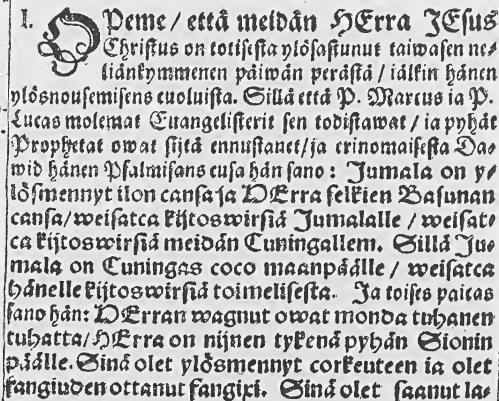 I. OPeme / että meidän HErra JEsus
Christus on totisesta ylösastunut taiwasen nel⸗
liänkymmenen päiwän perästä / iälkin hänen
ylösnousemisens euoluista. Sillä että P. Marcus ia P.
Lucas molemat Euangelisterit sen todistawat / ia pyhät
Prophetat owat sijtä ennustanet / ia erinomaisesta Da⸗
wid hänen Psalmisans cusa hän sano: Jumala on y⸗
lösmennyt ilon cansa ja HErra selkien Basunan
cansa / weisatca kijtoswirsiä Jumalalle / weisat⸗
ca kijtoswirsiä meidän Cuningallem. Sillä Ju⸗
mala on Cuningas coco maanpäälle / weisatca
hänelle kijtoswirsiä toimelisesta. Ja toises paicas
sano hän: HErran wagnut owat monda tuhanen
tuhatta / HErra on nijnen tykenä pyhän Sionin
päälle. Sinä olet ylösmennyt corkeuteen ia olet
fangiuden ottanut fangixi. Sinä olet saanut la⸗